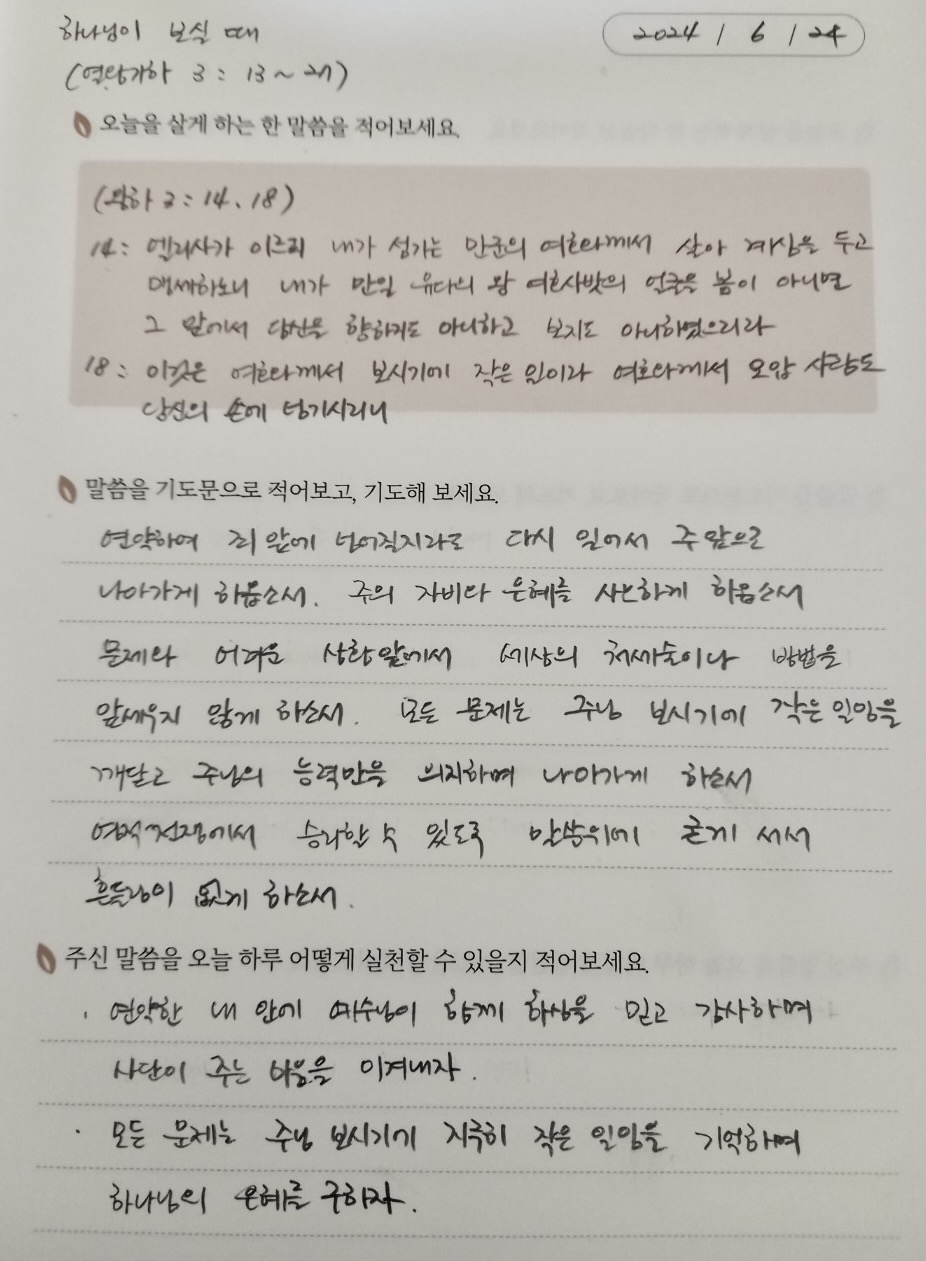 하나님이 보실 때
2024 / 6 / 24
(열왕기하 3 : 13 ~ 27)
오늘을 살게 하는 한 말씀을 적어보세요.
(왕하 3 : 14, 18)
14 : 엘리사가 이르되 내가 섬기는 만군의 여호와께서 살아 계심을 두고
맹세하노니 내가 만일 유다의 왕 여호사밧의 얼굴을 봄이 아니면
그 앞에서 당신을 향하지도 아니하고 보지도 아니하였으리라
18 : 이것은 여호와께서 보시기에 작은 일이라 여호와께서 모압 사람도
당신의 손에 넘기시리니
말씀을 기도문으로 적어보고, 기도해 보세요.
연약하여 죄 앞에 넘어질지라도 다시 일어서 주 앞으로
나아가게 하옵소서. 주의 자비와 은혜를 사모하게 하옵소서
문제와 어려운 상황앞에서 세상의 처세술이나 방법을
앞세우지 않게 하소서. 모든 문제는 주님 보시기에 작은 일임을
깨닫고 주님의 능력만을 의지하며 나아가게 하소서
영적전쟁에서 승리할 수 있도록 말씀위에 굳게 서서
흔들림이 없게 하소서.
주신 말씀을 오늘 하루 어떻게 실천할 수 있을지 적어보세요.
· 연약한 내 안에 예수님이 함께 하심을 믿고 감사하며
사단이 주는 마음을 이겨내자.
· 모든 문제는 주님 보시기기 지극히 작은 일임을 기억하며
하나님의 은혜를 구하자.